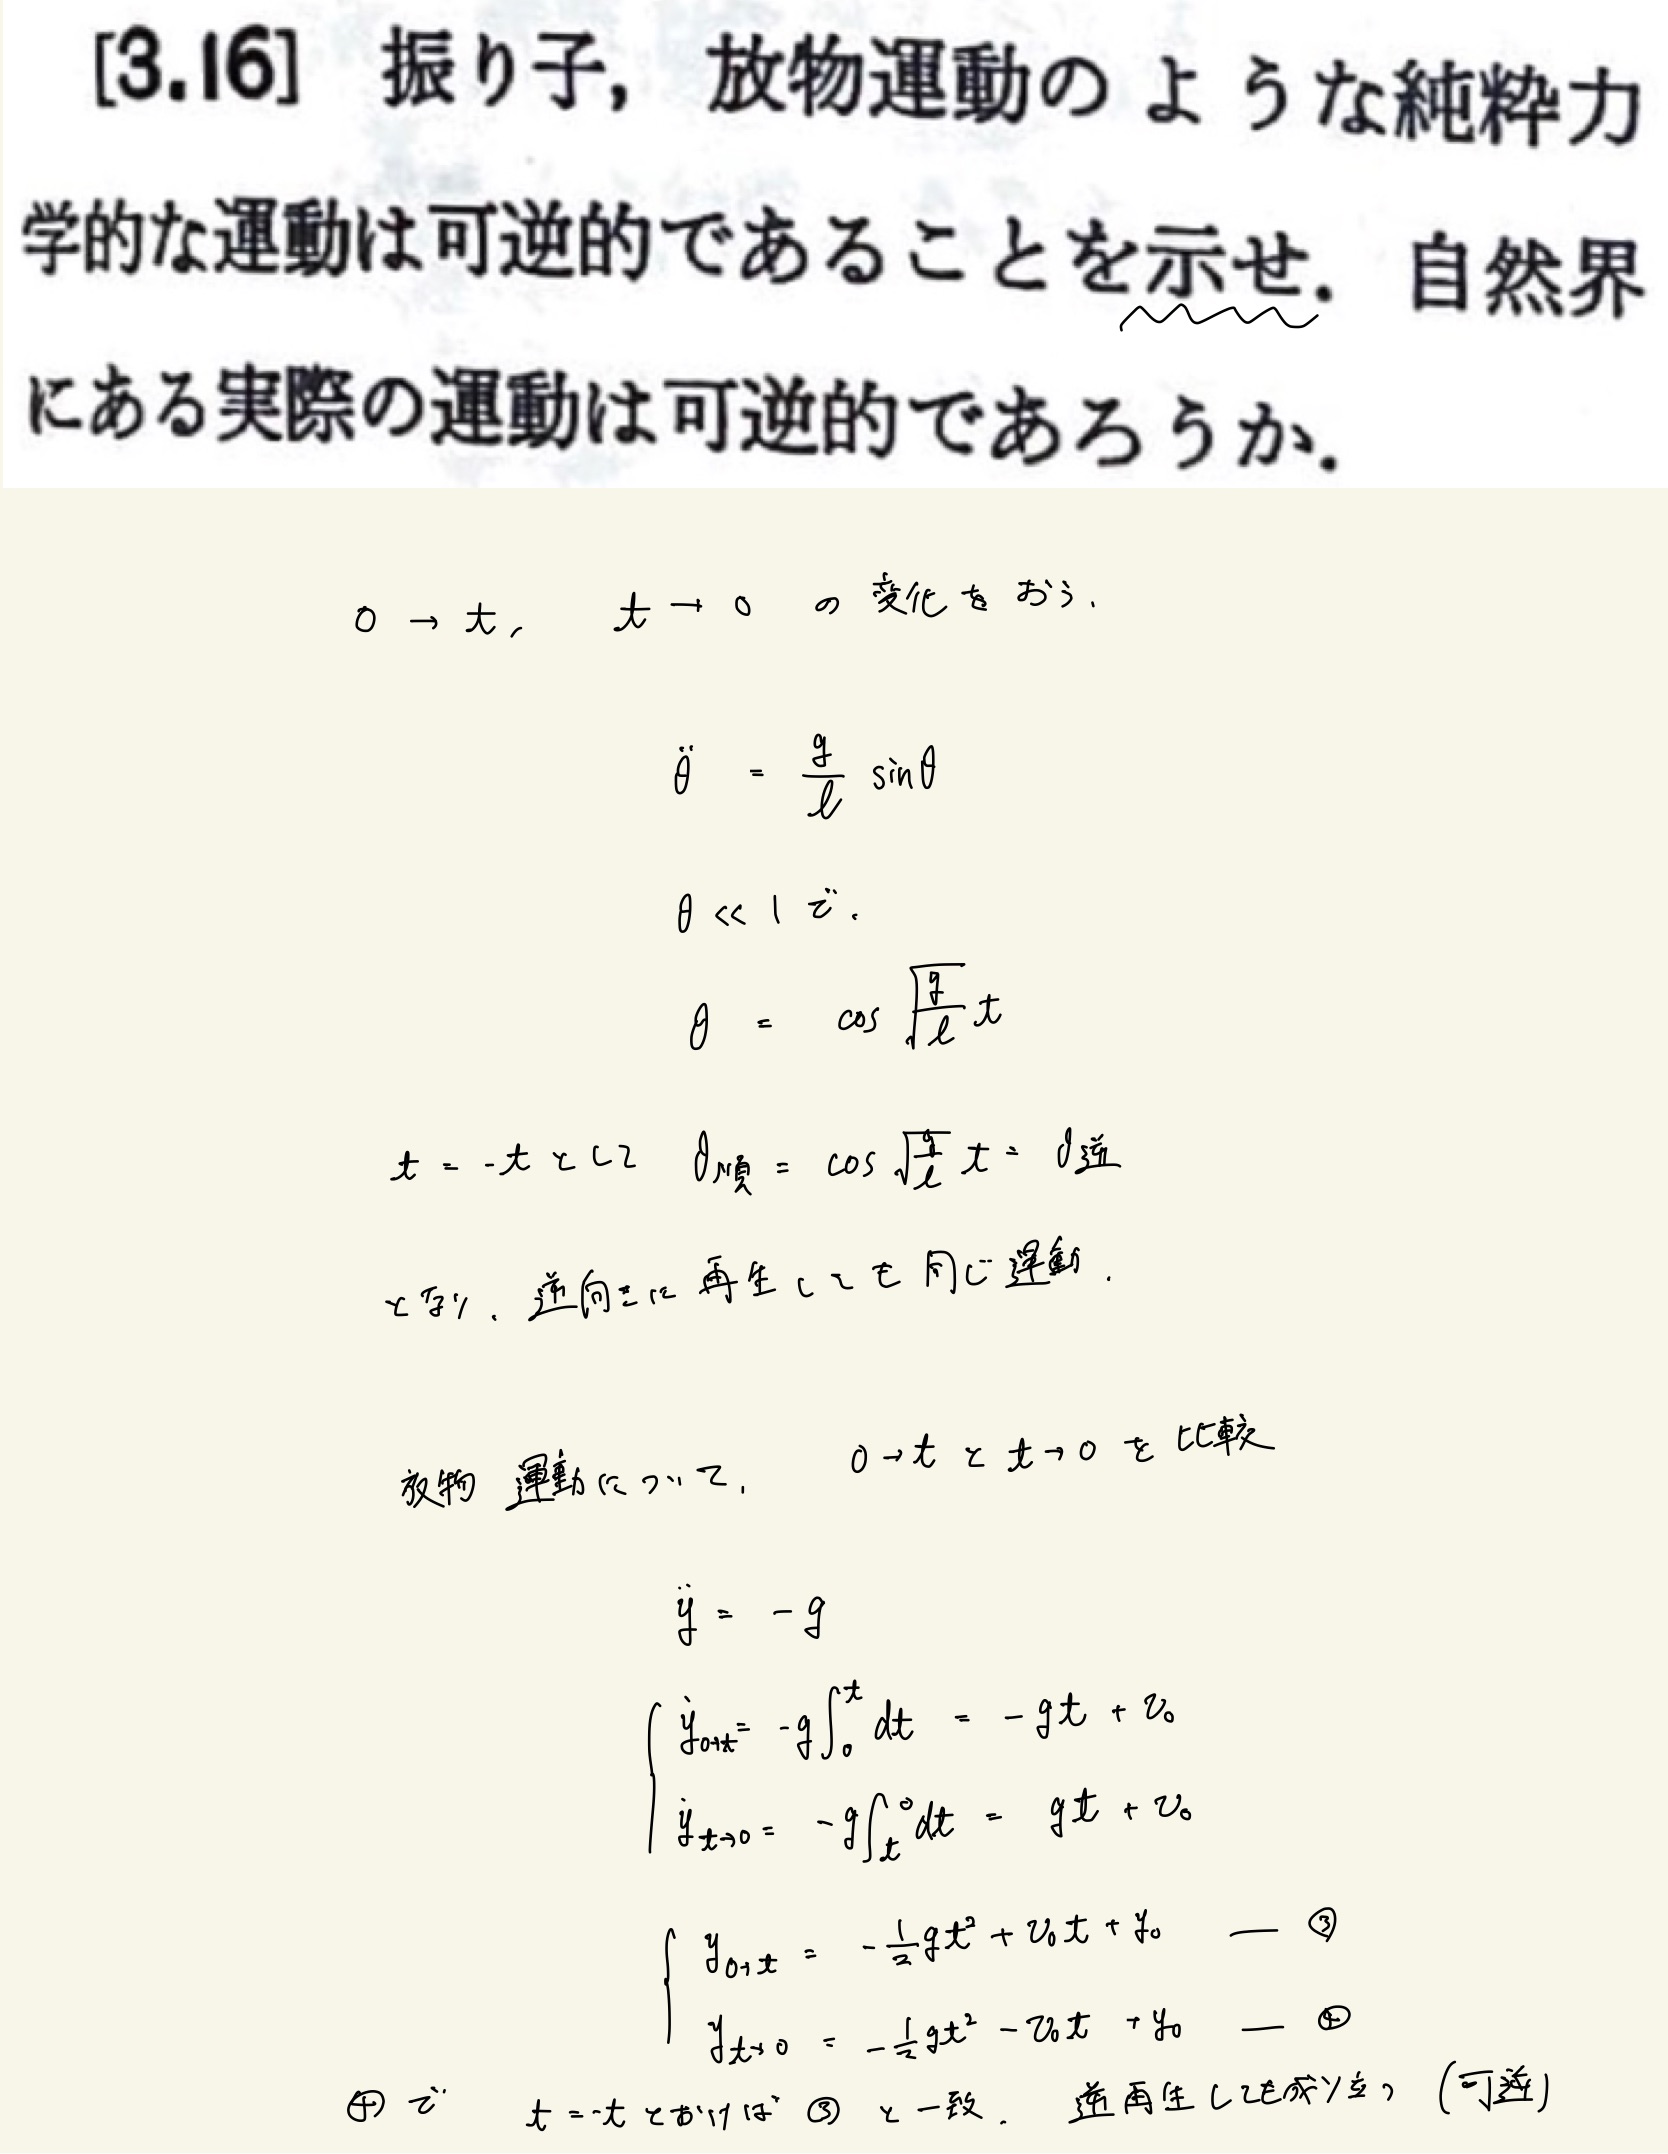 [3.16] 振り子，放物運動のような純粋力
学的な運動は可逆的であることを示せ．自然界
にある実際の運動は可逆的であろうか．
0 → t, t → 0 の変化をおう．
θ̈ = g/l sinθ
θ << 1 で．
θ = cos √(g/l) t
t = -t として θ順 = cos √(g/l) t = θ逆
となり、逆向きに再生しても同じ運動．
放物運動について、 0→t と t→0 を比較
ÿ = -g
ẏ0→t = -g∫₀ᵗ dt = -gt + v₀
ẏt→0 = -g∫ₜ⁰ dt = gt + v₀
y0→t = -1/2 gt² + v₀t + y₀ — ③
yt→0 = -1/2 gt² - v₀t + y₀ — ④
④で t = -t とおけば ③ と一致． 逆再生しても成り立つ (可逆)